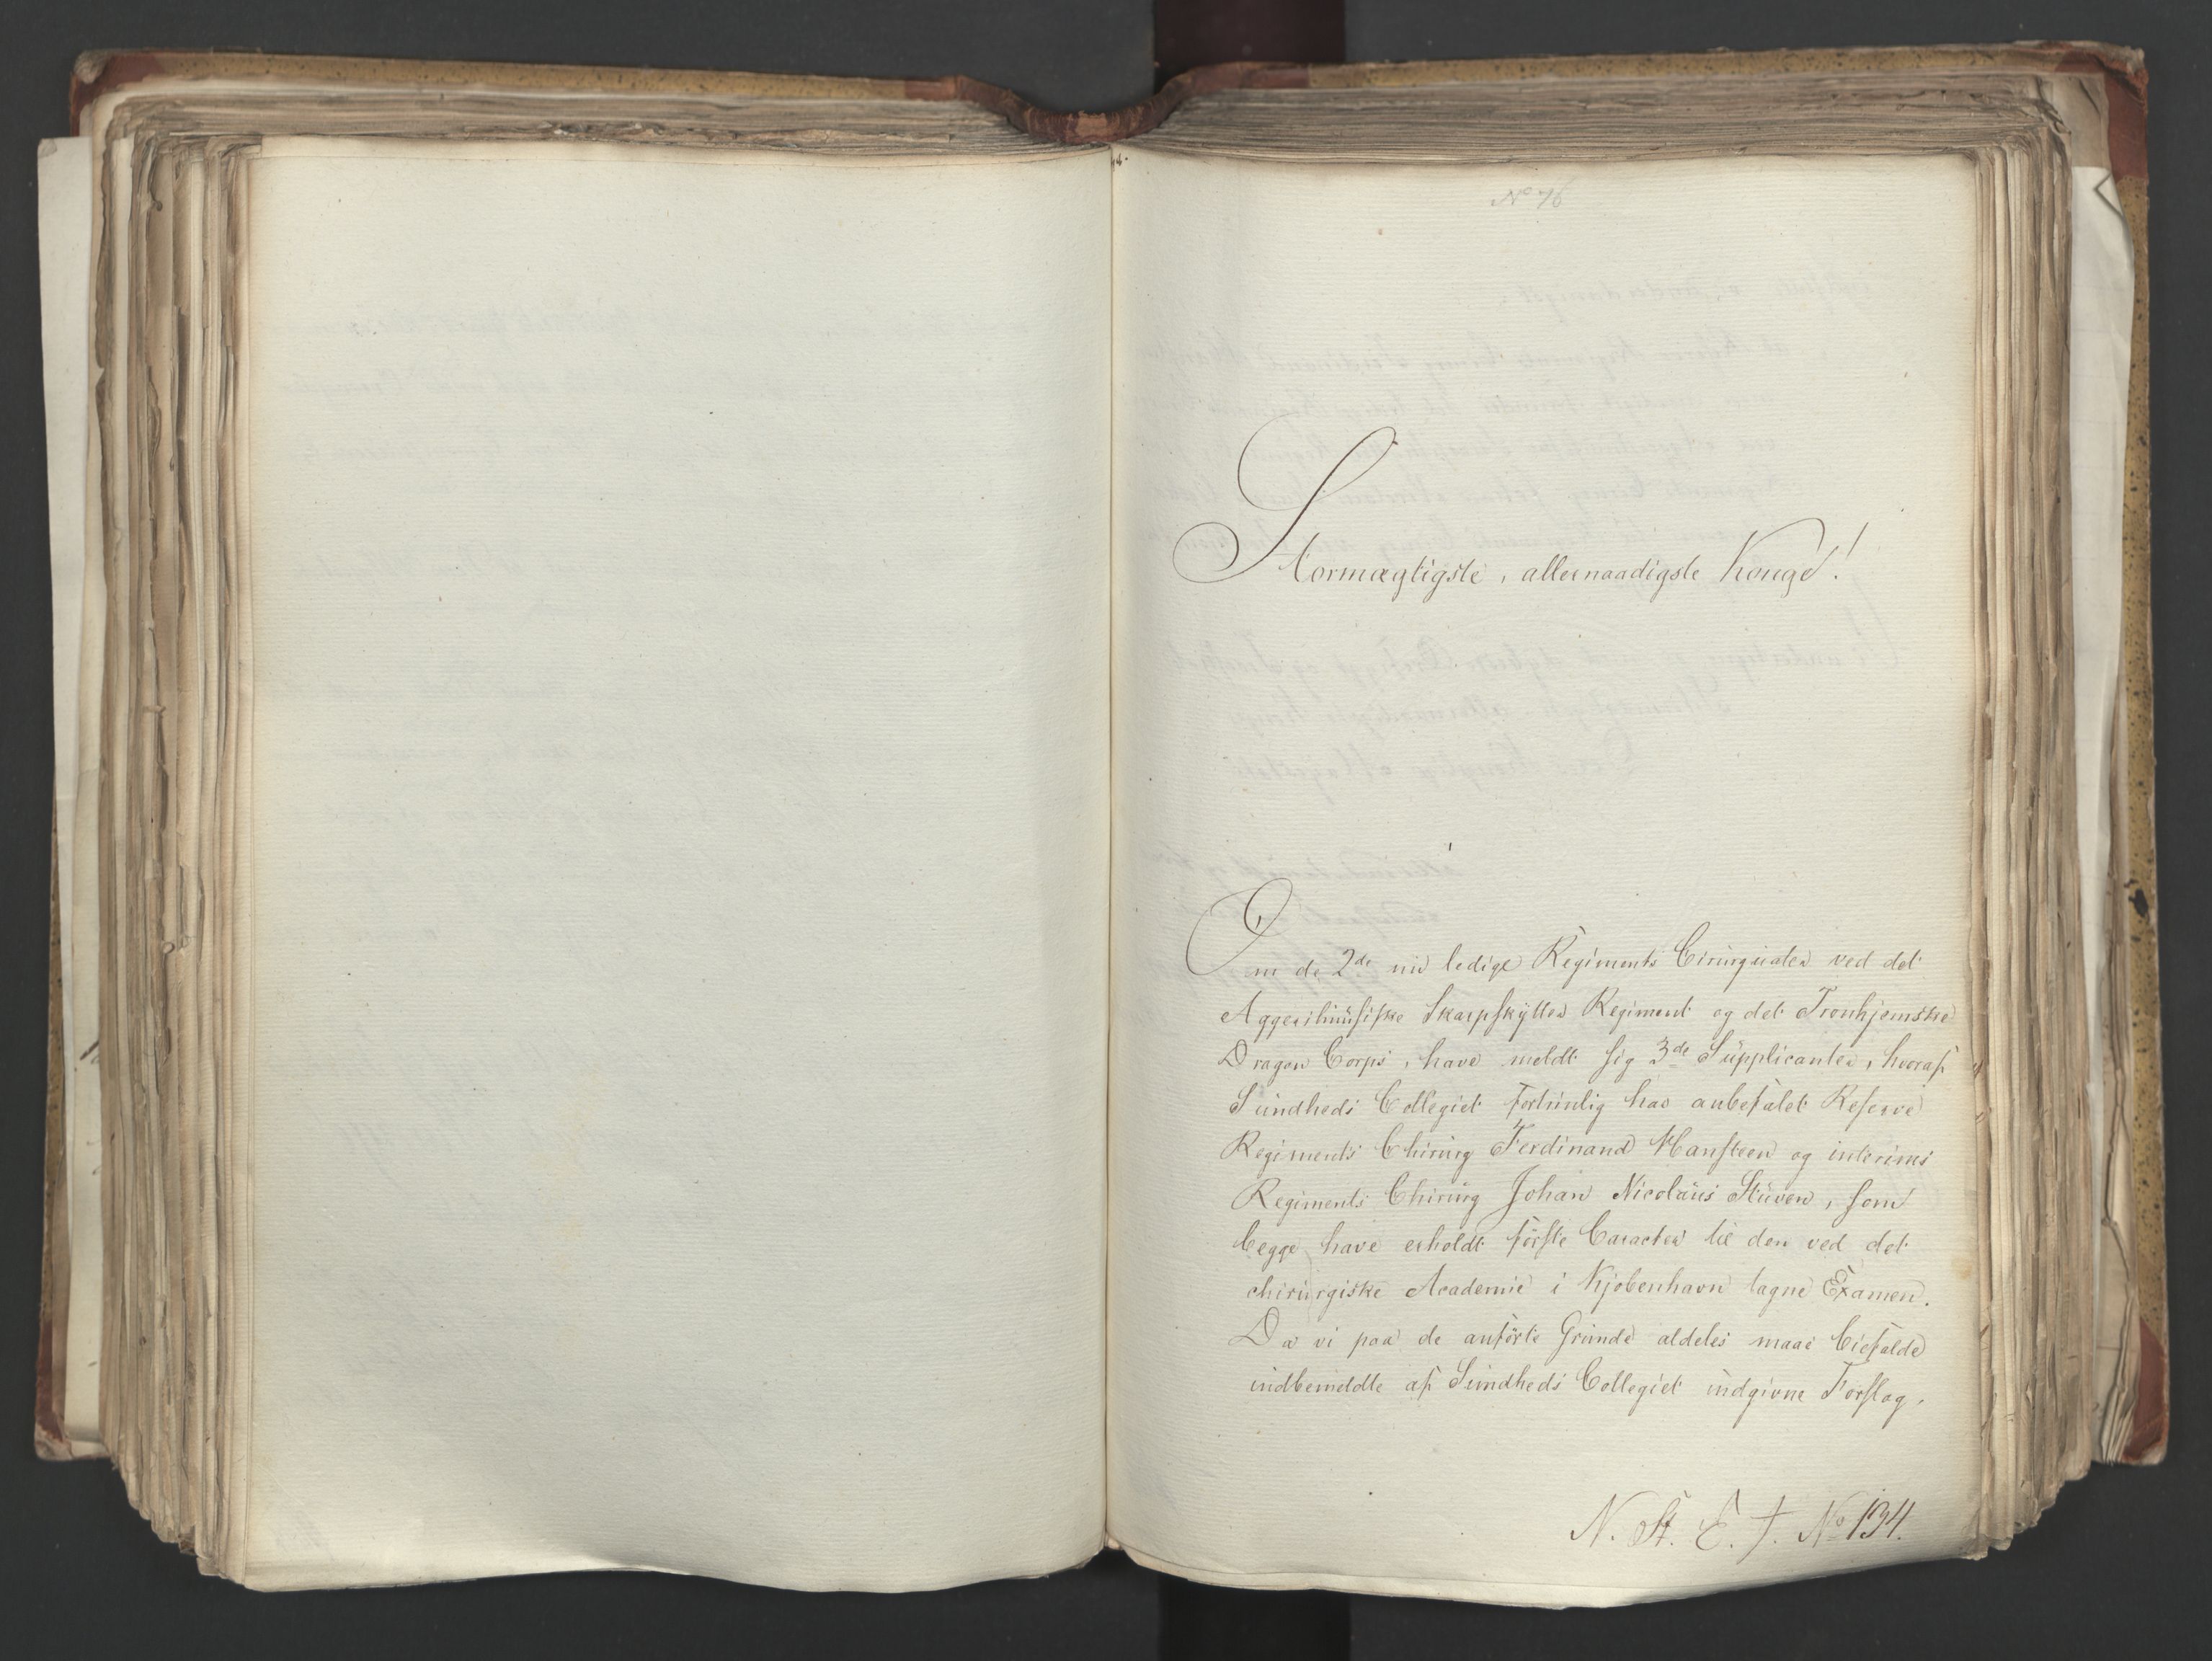 No 76
Stormægtigste, allernaadigste Konge!
Om de 2de nu ledige Regiments Cirurgiater ved det
Aggershuusiske Skarpskytter Regiment og det Tronhjemske
Dragon Corps, have meldt sig 3de Supplicanter, hvoraf
Sundheds Collegiet fortrinlig har anbefalet Reserve
Regiments Chirurg Ferdinand Hansteen og interims
Regiments Chirurg Johan Nicolaus Stüven, som
begge have erholdt første Caracter til den ved det
chirurgiske Academie i Kjøbenhavn tagne Examen.
Da vi paa de anførte Grunde aldeles maae biefalde
indbemeldte af Sundheds Collegiet indgivne Forslag,
N. St. E. f. No 134.